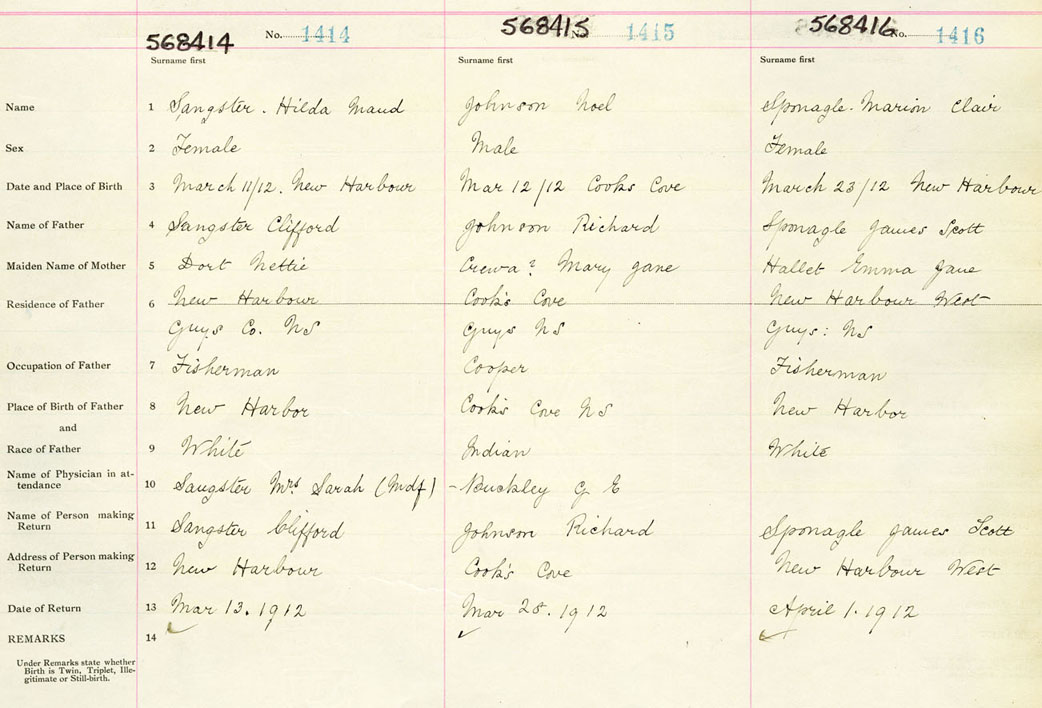 568414 No. 1414 568415 No. 1415 568416 No. 1416
Surname first Surname first Surname first
Name 1 Sangster. Hilda Maud Johnson Noel Sponagle. Marion Clair
Sex 2 Female Male Female
Date and Place of Birth 3 March 11/12. New Harbour Mar 12/12 Cooks Cove March 23/12 New Harbour
Name of Father 4 Sangster Clifford Johnson Richard Sponagle James Scott
Maiden Name of Mother 5 Dort Nettie Crewa? Mary Jane Hallet Emma Jane
Residence of Father 6 New Harbour Cook's Cove New Harbour West
Guys Co. NS Guys NS Guys: NS
Occupation of Father 7 Fisherman Cooper Fisherman
Place of Birth of Father 8 New Harbor Cook's Cove NS New Harbor
and
Race of Father 9 White Indian White
Name of Physician in at-
tendance 10 Sangster Mrs Sarah (Mdf) - Buckley G E
Name of Person making
Return 11 Sangster Clifford Johnson Richard Sponagle James Scott
Address of Person making
Return 12 New Harbour Cook's Cove New Harbour West
Date of Return 13 Mar 13. 1912 Mar 28. 1912 April 1. 1912
REMARKS 14
Under Remarks state whether
Birth is Twin, Triplet, Ille-
gitimate or Still-birth.